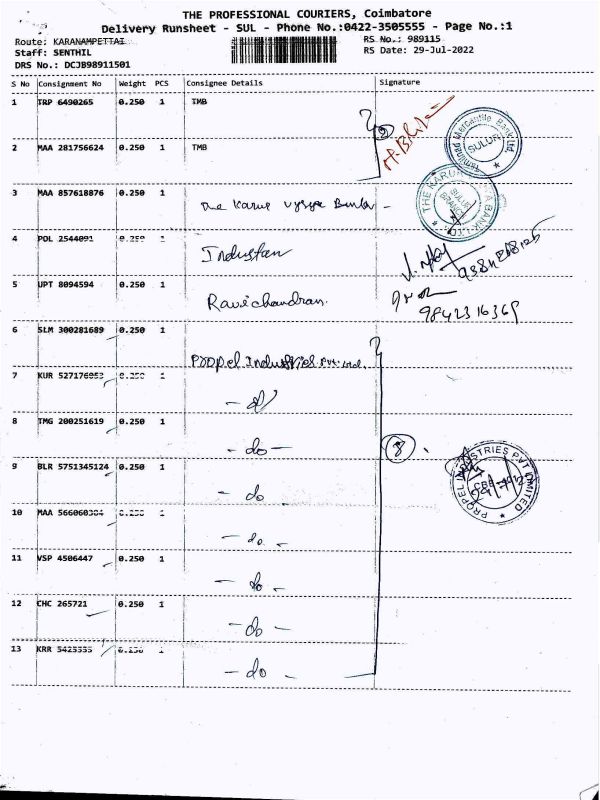 THE PROFESSIONAL COURIERS, Coimbatore
Delivery Runsheet - SUL - Phone No.:0422-3505555 - Page No.:1
Route: KARANAMPETTAI
RS No.: 989115
Staff: SENTHIL
RS Date: 29-Jul-2022
DRS No.: DCJB98911501
S No Consignment No Weight PCS Consignee Details Signature
1 TRP 6490265 0.250 1 TMB
2 MAA 281756624 0.250 1 TMB
TAMILNAD MERCANTILE BANK Ltd.
SULUR
3 MAA 857618876 0.250 1 The Karur Vysya Bank -
THE KARUR BANK LTD.
SULUR
4 POL 2544091 0.250 1 Industan
5 UPT 8094594 0.250 1 Ravichandran.
9842316369
6 SLM 300281689 0.250 1 Propel Industries Pvt Ltd.
7 KUR 527176953 0.250 1 - do
8 TMG 200251619 0.250 1 - do -
8
9 BLR 5751345124 0.250 1 - do
PROPEL INDUSTRIES PVT LIMITED
10 MAA 566060304 0.250 1 - do. -
11 VSP 4506447 0.250 1 - do -
12 CHC 265721 0.250 1 - do -
13 KRR 5425555 0.250 1 - do -